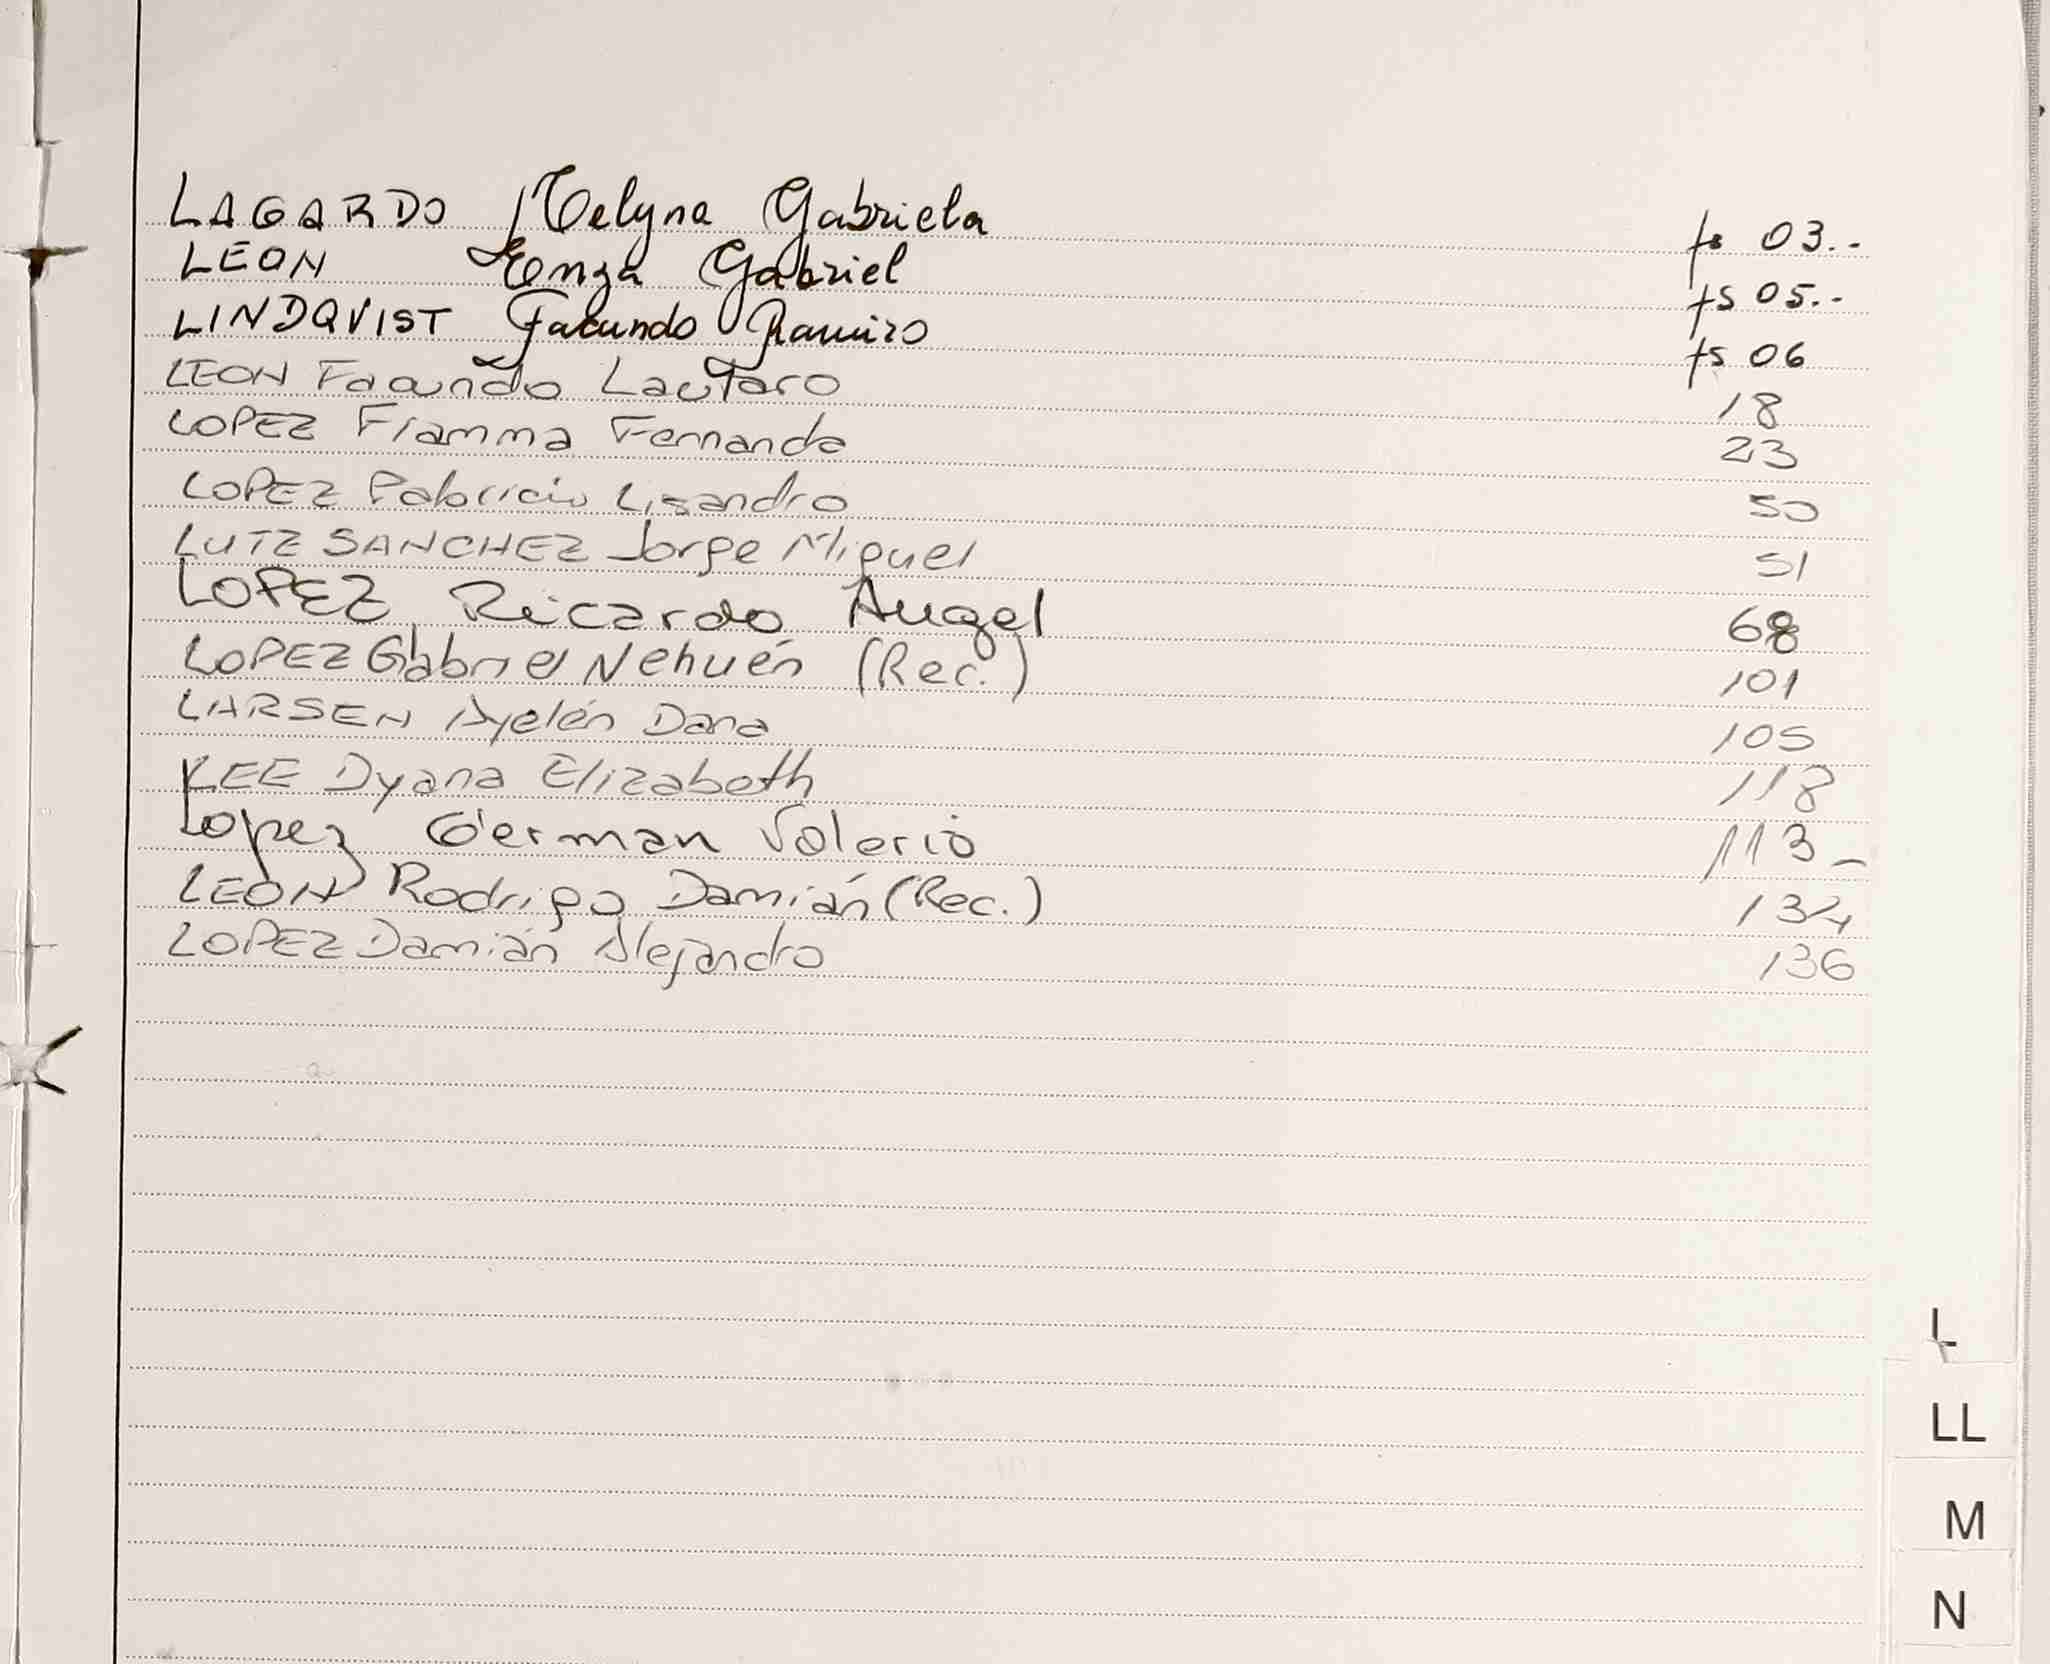 LAGARDO Melyna Gabriela fs 03..
LEON Enza Gabriel fs 05..
LINDQVIST Facundo Ramiro fs 06
LEON Facundo Lautaro 18
LOPEZ Fiamma Fernanda 23
LOPEZ Fabricio Lisandro 50
LUTZ SANCHEZ Jorge Miguel 51
LOPEZ Ricardo Angel 68
LOPEZ Gabriel Nehuén (Rec.) 101
LARSEN Ayelén Dana 105
LEE Dyana Elizabeth 118
Lopez German Valerio 113_
LEON Rodrigo Damián (Rec.) 134
LOPEZ Damián Alejandro 136
L
LL
M
N